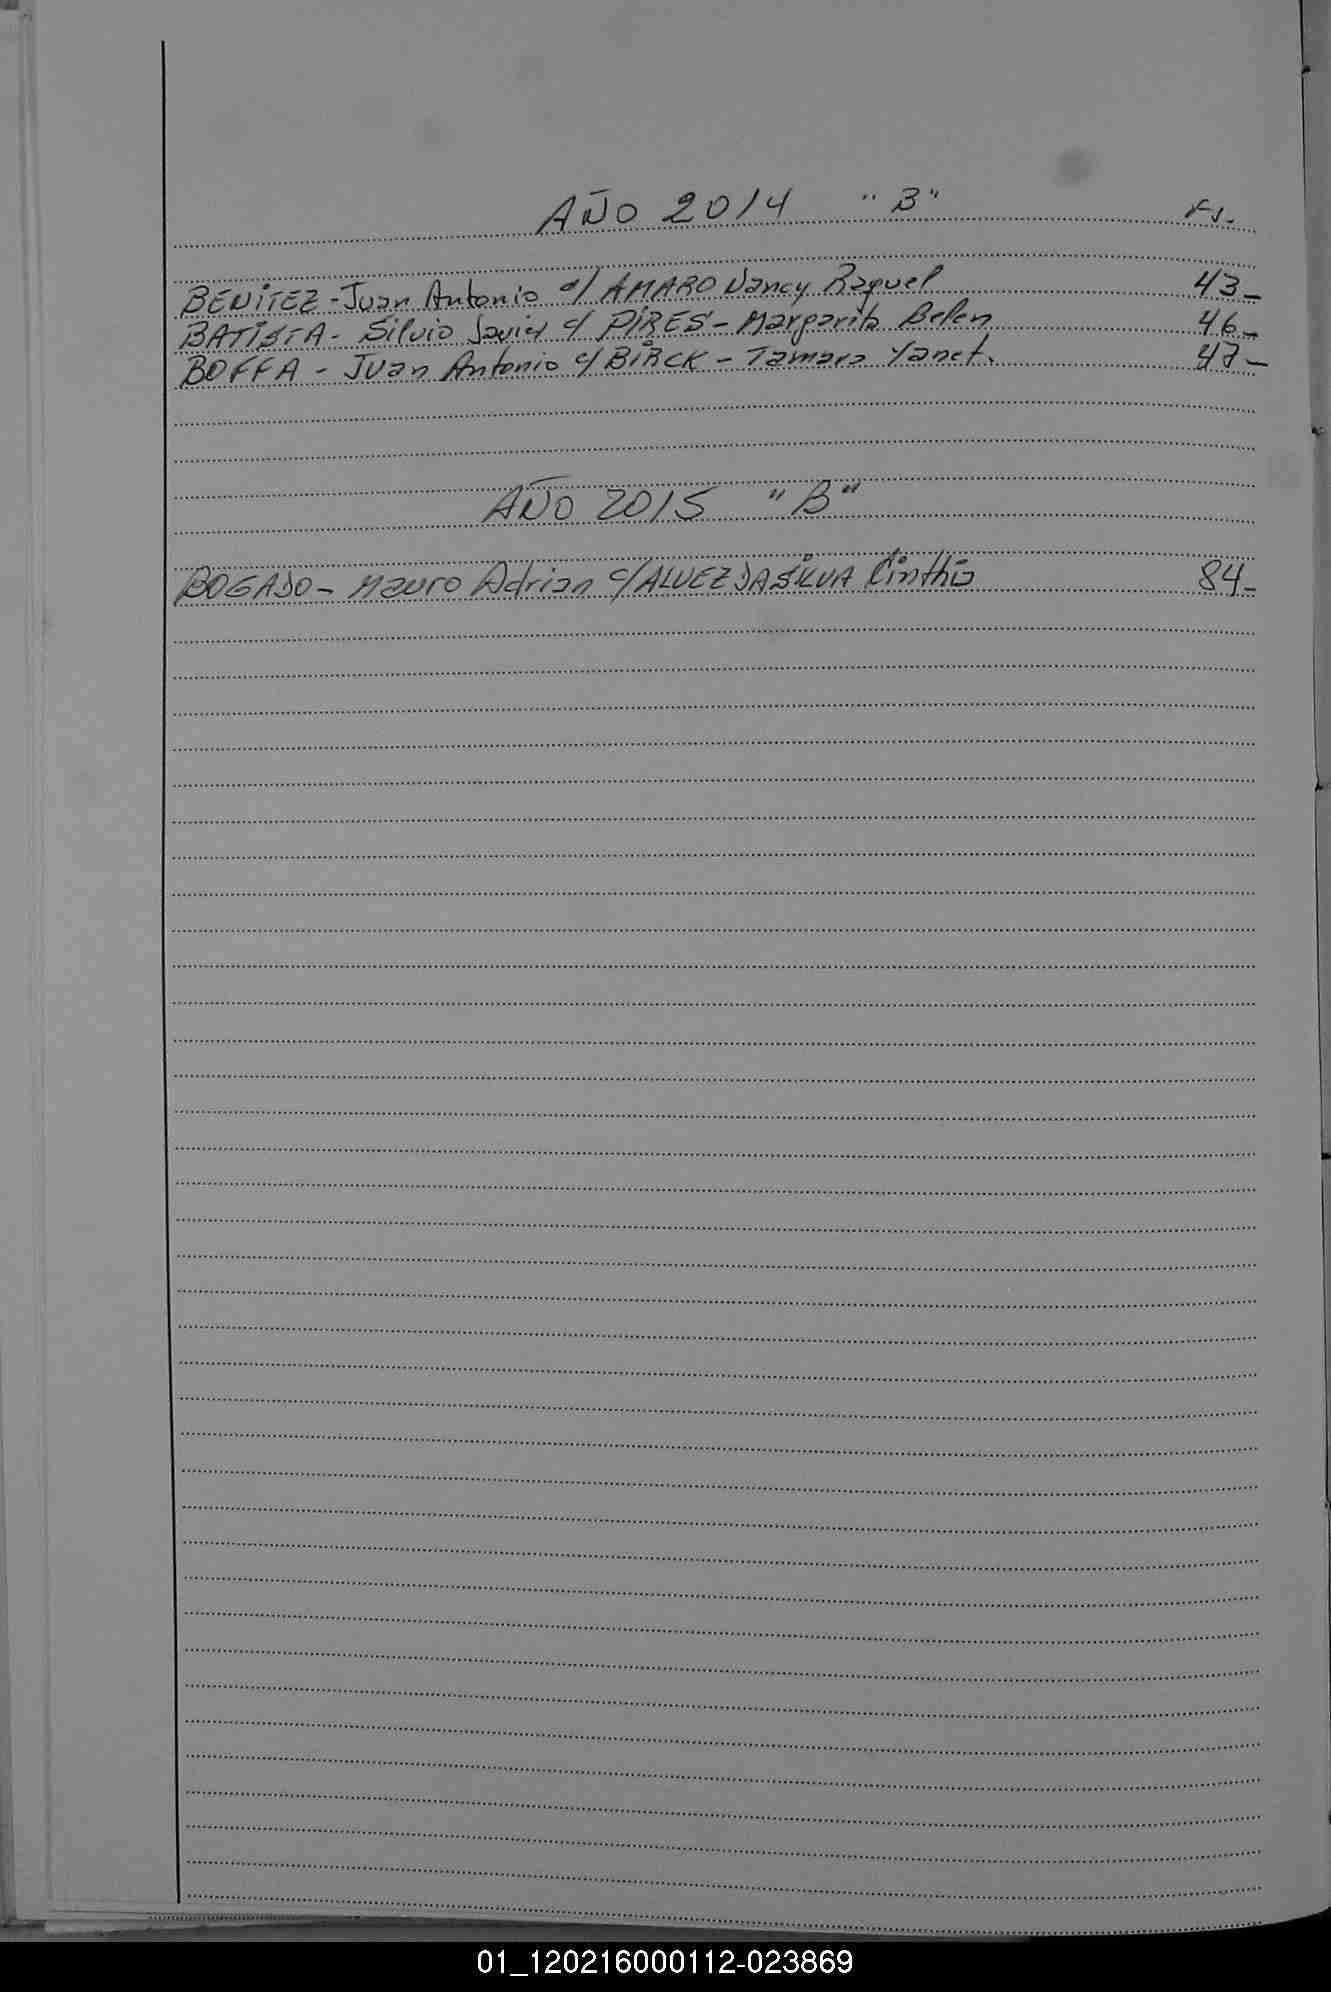 AÑO 2014 "B" Fs.
BENITEZ - Juan Antonio c/ AMARO Nancy Raquel 43-
BATISTA - Silvio Javier c/ PIRES - Margarita Belen 46-
BOFFA - Juan Antonio c/ BIRCK - Tamara Yanet. 47-
AÑO 2015 "B"
BOGADO - Mauro Adrian c/ ALVEZ DA SILVA Cinthia 84-
01_120216000112-023869